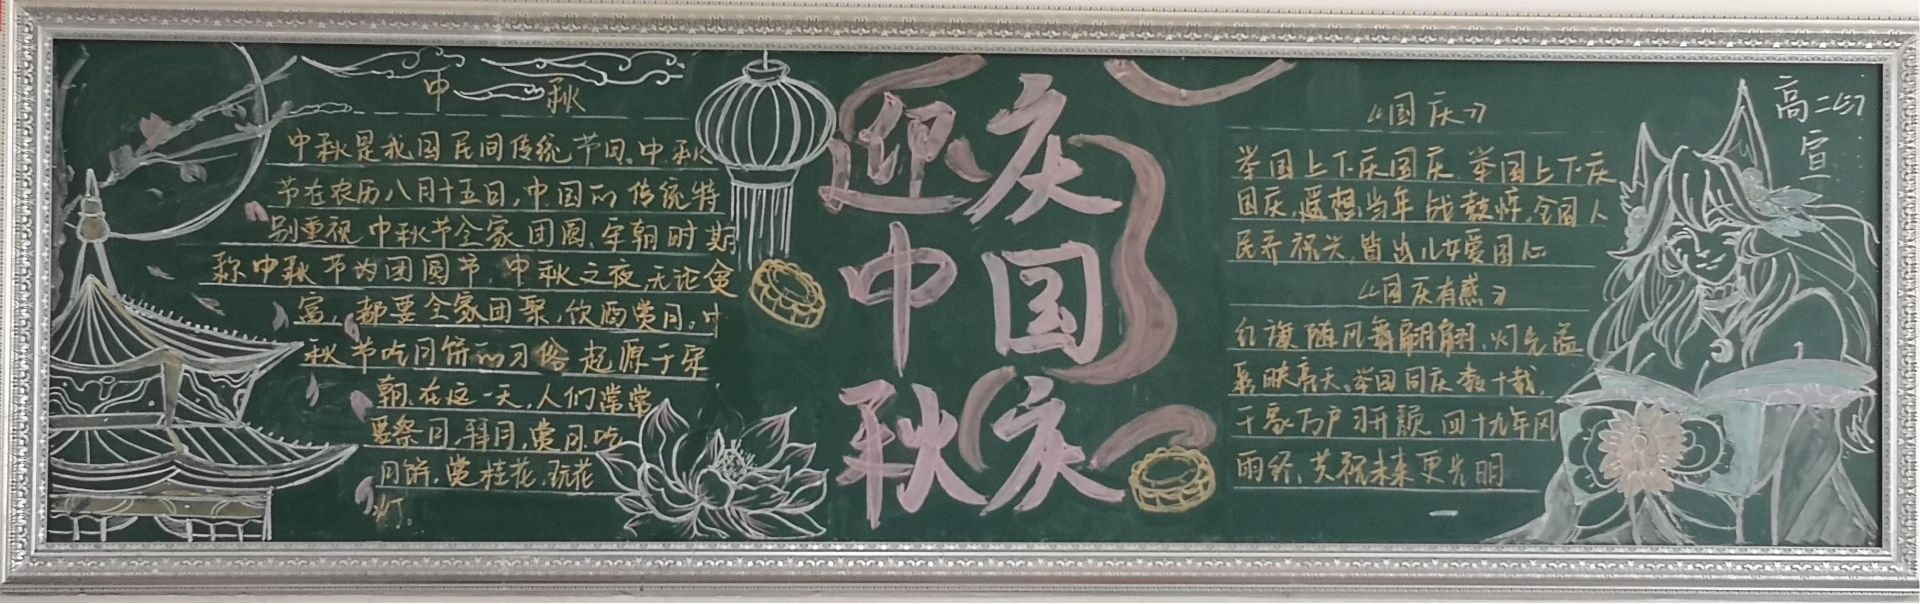 中 秋
中秋是我国民间传统节间,中秋
节在农历八月十五日,中国的传统特
别重视中秋节全家团圆,年朝时期
称中秋节为团圆节,中秋之夜,无论贫
富,都要全家团聚,饮酒赏月,中
秋节吃月饼的习俗起源于宋
朝,在这一天,人们常常
要祭月,拜月,赏月,吃
月饼,赏桂花,玩花
灯。
迎中秋
庆国庆
《国庆》
举国上下庆国庆,举国上下庆
国庆,遥想当年战鼓,全国人
民齐祝兴,皆出儿女爱国心
《国庆有感》
红旗随风舞翩翩,灯光溢
彩映亮天,举国同庆数十载,
千家万户习开颜,四十九年风
雨经,共祝未来更光明
高二(7)
宣